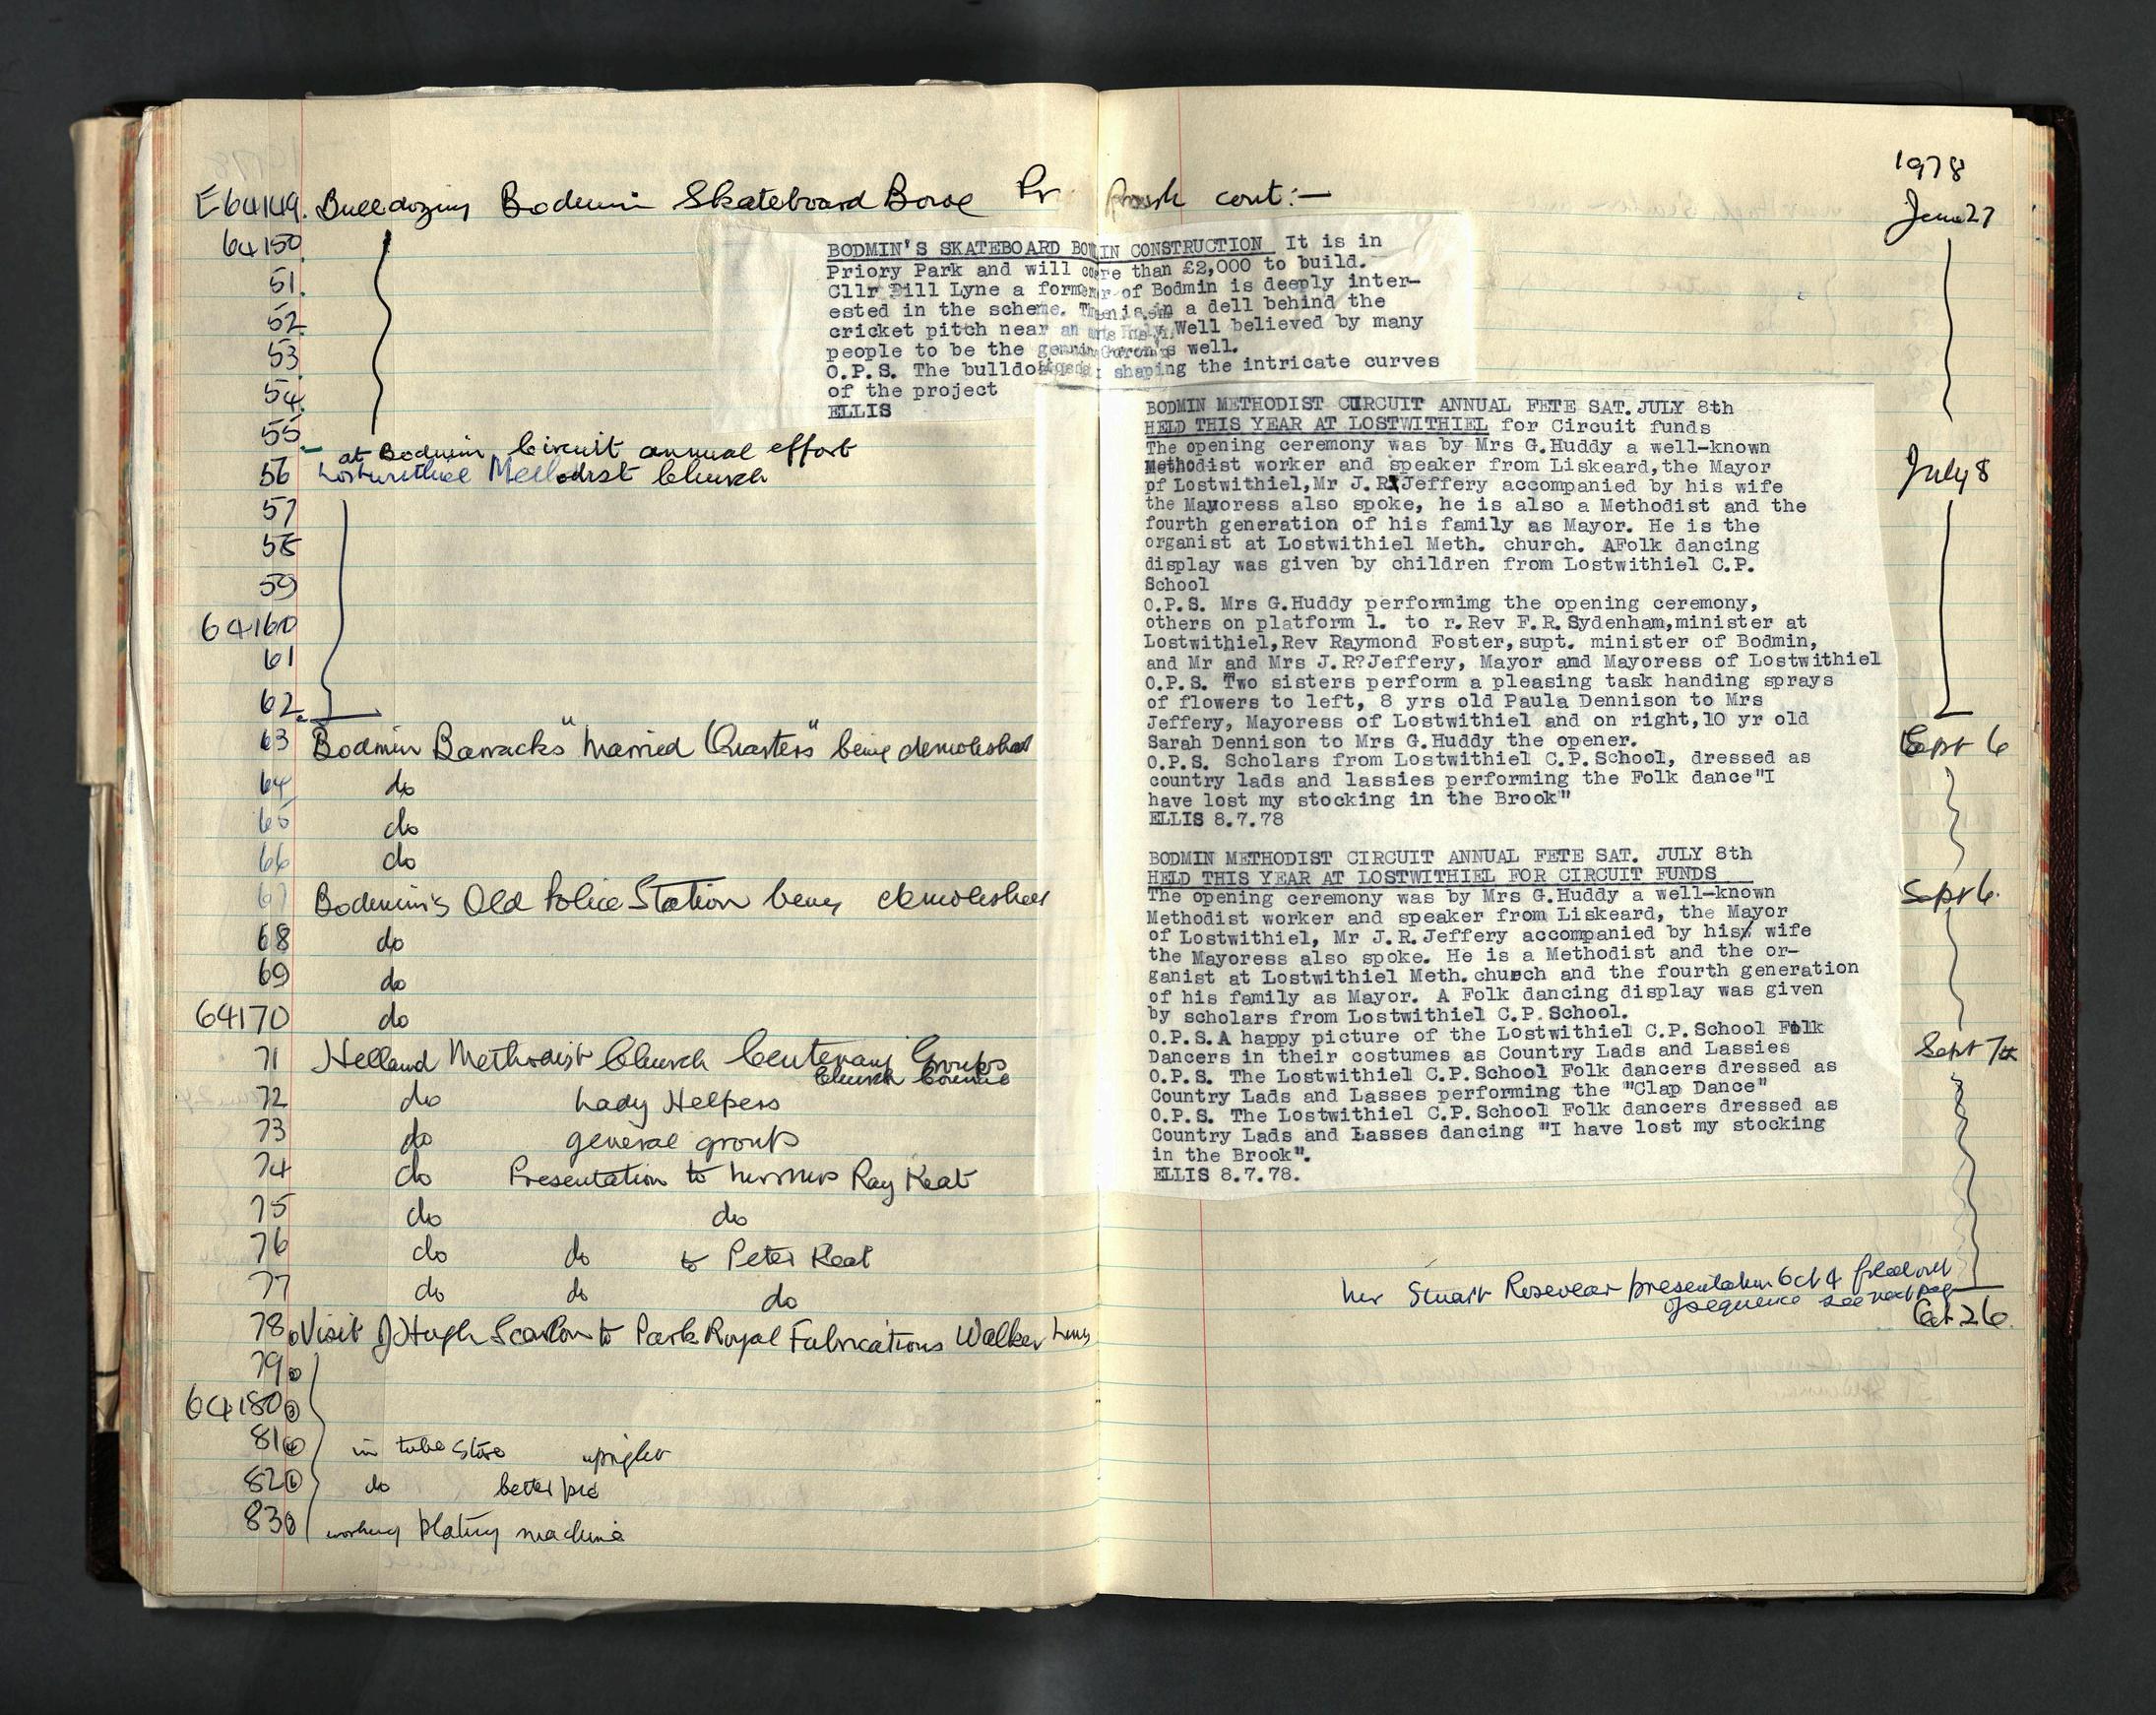 1978
E64149. Bulldozing Bodmin Skateboard Bowl Pr Park cont:— June 27
64150
51.
52.
53
54.
55
at Bodmin Circuit annual effort
56 Lostwithiel Methodist Church July 8
57
58
59
64160
61
62
63 Bodmin Barracks "Married Quarters" being demolished Sept 6
64 do
65 do
66 do
67 Bodmin's Old Police Station being demolished Sept 6.
68 do
69 do
64170 do
71 Helland Methodist Church Centenary Groups Sept 7th
Church Council
72 do Lady Helpers
73 do general group
74 do Presentation to Mr & Mrs Ray Keat
75 do do
76 do do to Peter Keat
77 do do do
Mr Stuart Rosevear presentation Oct 4 filed out
of sequence see next page
78 Visit of Hugh Scanlon to Park Royal Fabrications Walker Lines Oct 26
79
64180 3
81 4 in tube store upright
82 do better pic
83 working plating machine
BODMIN'S SKATEBOARD BO IN CONSTRUCTION It is in
Priory Park and will co re than £2,000 to build.
Cllr Bill Lyne a former r of Bodmin is deeply inter-
ested in the scheme. in a dell behind the
cricket pitch near an Holy Well believed by many
people to be the genuin Goron's well.
O.P.S. The bulldo shaping the intricate curves
of the project
ELLIS
BODMIN METHODIST CIRCUIT ANNUAL FETE SAT. JULY 8th
HELD THIS YEAR AT LOSTWITHIEL for Circuit funds
The opening ceremony was by Mrs G.Huddy a well-known
Methodist worker and speaker from Liskeard,the Mayor
of Lostwithiel,Mr J.R.Jeffery accompanied by his wife
the Mayoress also spoke, he is also a Methodist and the
fourth generation of his family as Mayor. He is the
organist at Lostwithiel Meth. church. AFolk dancing
display was given by children from Lostwithiel C.P.
School
O.P.S. Mrs G.Huddy performimg the opening ceremony,
others on platform l. to r.Rev F.R.Sydenham,minister at
Lostwithiel,Rev Raymond Foster,supt. minister of Bodmin,
and Mr and Mrs J.R?Jeffery, Mayor amd Mayoress of Lostwithiel
O.P.S. Two sisters perform a pleasing task handing sprays
of flowers to left, 8 yrs old Paula Dennison to Mrs
Jeffery, Mayoress of Lostwithiel and on right,10 yr old
Sarah Dennison to Mrs G.Huddy the opener.
O.P.S. Scholars from Lostwithiel C.P.School, dressed as
country lads and lassies performing the Folk dance"I
have lost my stocking in the Brook"
ELLIS 8.7.78
BODMIN METHODIST CIRCUIT ANNUAL FETE SAT. JULY 8th
HELD THIS YEAR AT LOSTWITHIEL FOR CIRCUIT FUNDS
The opening ceremony was by Mrs G.Huddy a well-known
Methodist worker and speaker from Liskeard, the Mayor
of Lostwithiel, Mr J.R.Jeffery accompanied by his wife
the Mayoress also spoke. He is a Methodist and the or-
ganist at Lostwithiel Meth.church and the fourth generation
of his family as Mayor. A Folk dancing display was given
by scholars from Lostwithiel C.P.School.
O.P.S.A happy picture of the Lostwithiel C.P.School Folk
Dancers in their costumes as Country Lads and Lassies
O.P.S. The Lostwithiel C.P.School Folk dancers dressed as
Country Lads and Lasses performing the "Clap Dance"
O.P.S. The Lostwithiel C.P.School Folk dancers dressed as
Country Lads and Lasses dancing "I have lost my stocking
in the Brook".
ELLIS 8.7.78.